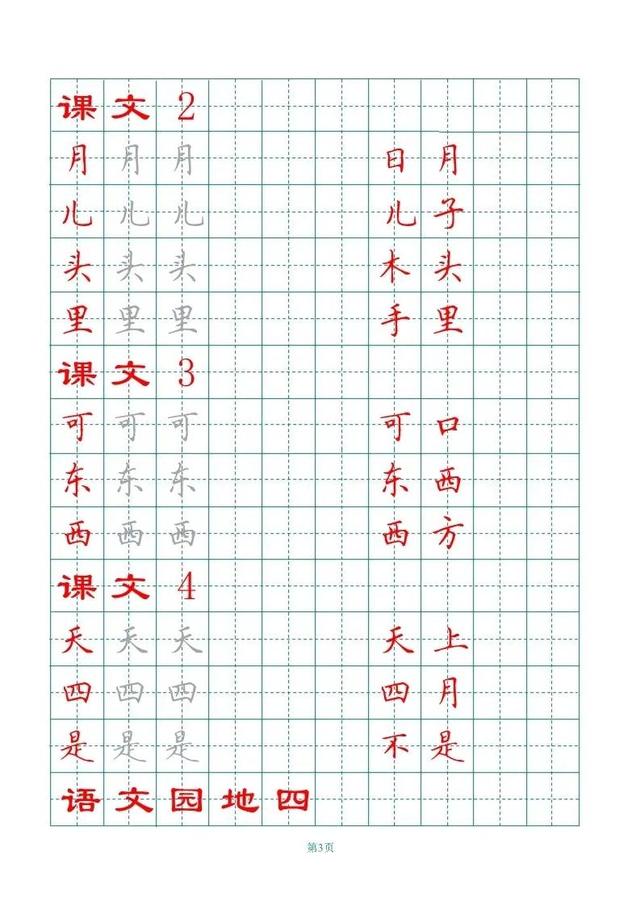 课文 2
月 月 月 日 月
儿 儿 儿 儿 子
头 头 头 木 头
里 里 里 手 里
课文 3
可 可 可 可 口
东 东 东 东 西
西 西 西 西 方
课文 4
天 天 天 天 上
四 四 四 四 月
是 是 是 不 是
语文园地四
第3页